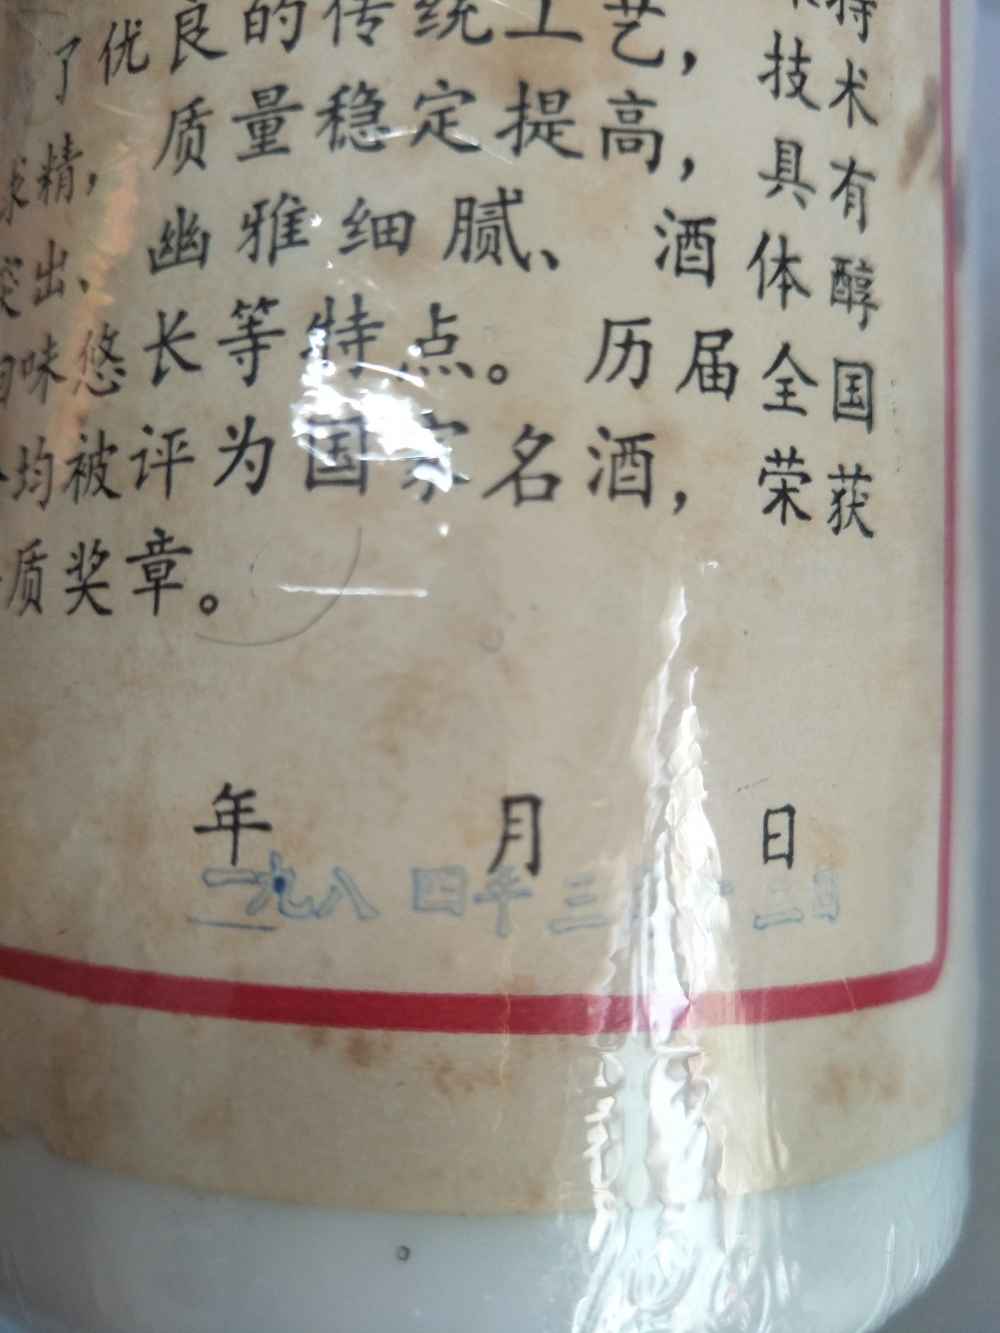 特
了优良的传统工艺，技术
精，质量稳定提高，具有
突出、幽雅细腻、酒体醇
味悠长等特点。历届全国
均被评为国家名酒，荣获
质奖章。
年 月 日
一九八四年三月 二日